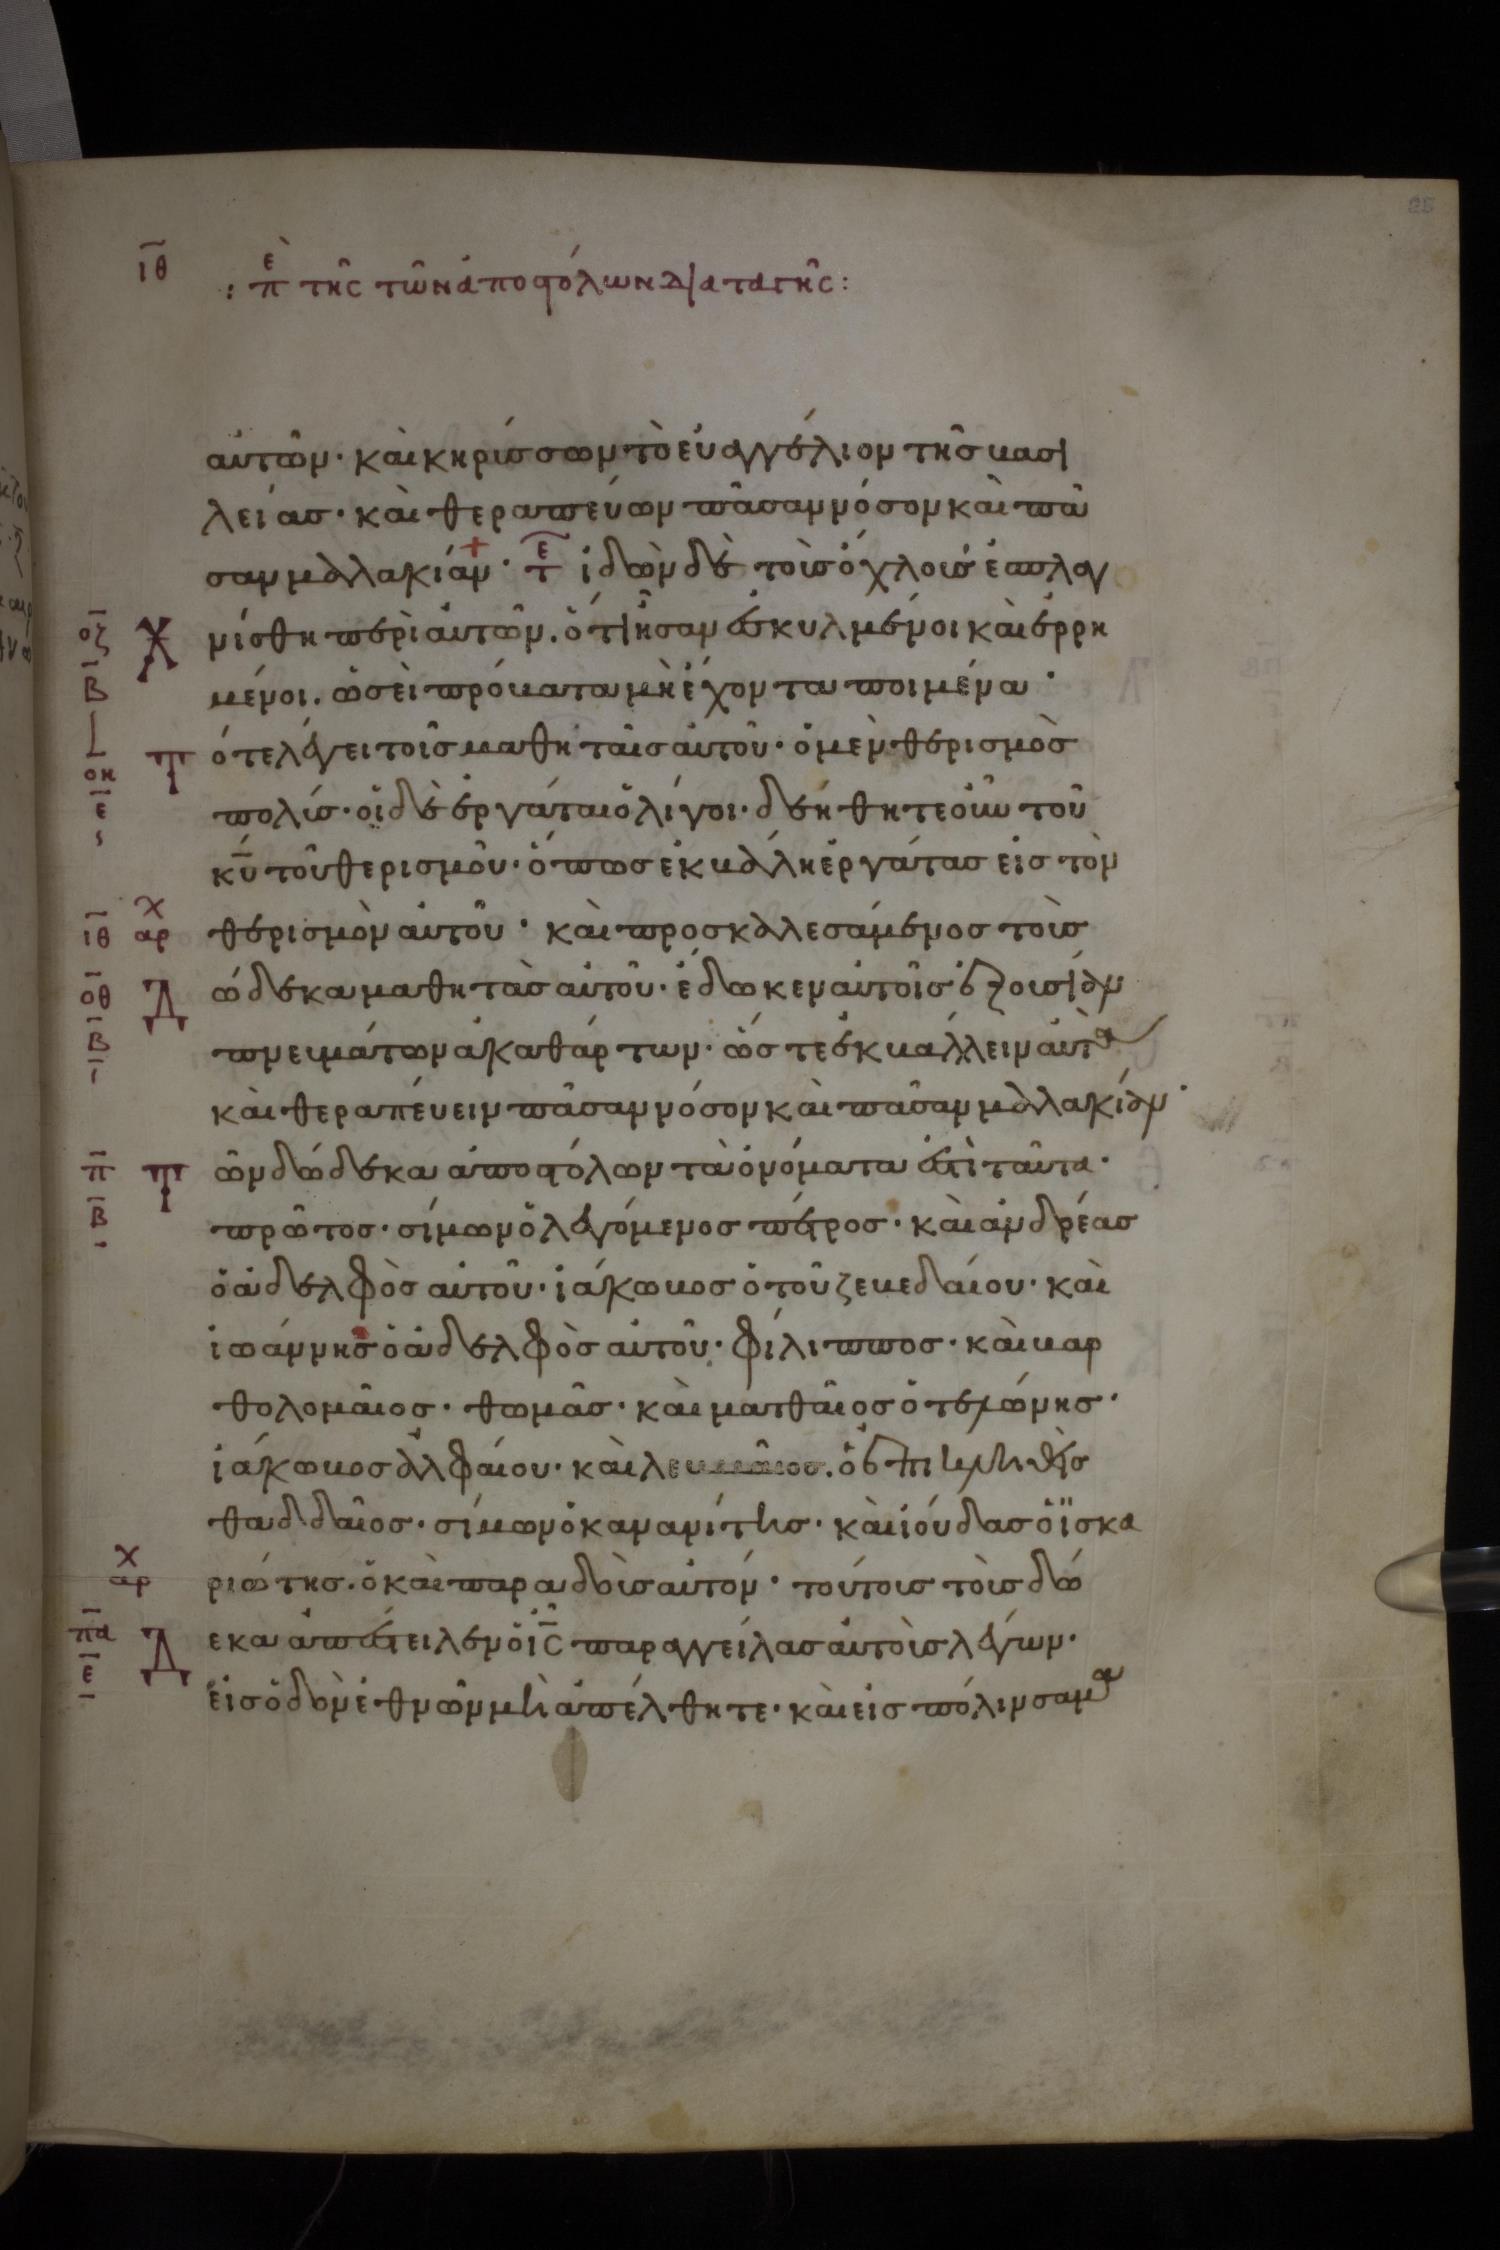 ιθ
: πὲ τῆς τῶν ἀποστόλων διαταγῆς :
αὐτῶν · καὶ κηρύσσων τὸ εὐαγγέλιον τῆς βασι
λείας · καὶ θεραπεύων πᾶσαν νόσον καὶ πᾶ
σαν μαλακίαν · τε ἰδὼν δὲ τοὺς ὄχλους ἐσπλαγ
οζ Χ νίσθη περὶ αὐτῶν . ὅτι ἦσαν ἐσκυλμένοι καὶ ἐρρη
Β μένοι . ὡσεὶ πρόβατα μὴ ἔχοντα ποιμένα ·
οη Τ ότε λέγει τοῖς μαθηταῖς αὐτοῦ · ὁ μὲν θερισμὸς
ε πολύς · οἱ δὲ ἐργάται ὀλίγοι · δεήθητε οὖν τοῦ
κυ τοῦ θερισμοῦ · ὅπως ἐκβάλη ἐργάτας εἰς τὸν
ιθ αρχ θερισμὸν αὐτοῦ · καὶ προσκαλεσάμενος τοὺς
οθ Δ ώδεκα μαθητὰς αὐτοῦ · ἔδωκεν αὐτοῖς ἐξουσίαν
Β πνευμάτων ἀκαθάρτων · ὥστε ἐκβάλλειν αὐτὰ
καὶ θεραπεύειν πᾶσαν νόσον καὶ πᾶσαν μαλακίαν ·
π Τ ῶν δώδεκα ἀποστόλων τὰ ὀνόματα ἐστὶ ταῦτα ·
Β πρῶτος · σίμων ὁ λεγόμενος πέτρος · καὶ ἀνδρέας
ὁ ἀδελφὸς αὐτοῦ · ἰάκωβος ὁ τοῦ ζεβεδαίου · καὶ
ἰωάννης ὁ ἀδελφὸς αὐτοῦ · φίλιππος · καὶ βαρ
θολομαῖος · θωμᾶς · καὶ ματθαῖος ὁ τελώνης ·
ἰάκωβος ἀλφαίου · καὶ λεββαῖος . ὁ ἐπικληθεὶς
θαδδαῖος · σίμων ὁ κανανίτης · καὶ ἰούδας ὁ ϊσκα
αρχ ριώτης . ὁ καὶ παραδοὺς αὐτόν · τούτους τοὺς δώ
πα Δ εκα ἀπέστειλεν ὁ ις παραγγείλας αὐτοῖς λέγων ·
ε εἰς ὁδὸν ἐθνῶν μὴ ἀπέλθητε · καὶ εἰς πόλιν σαμα